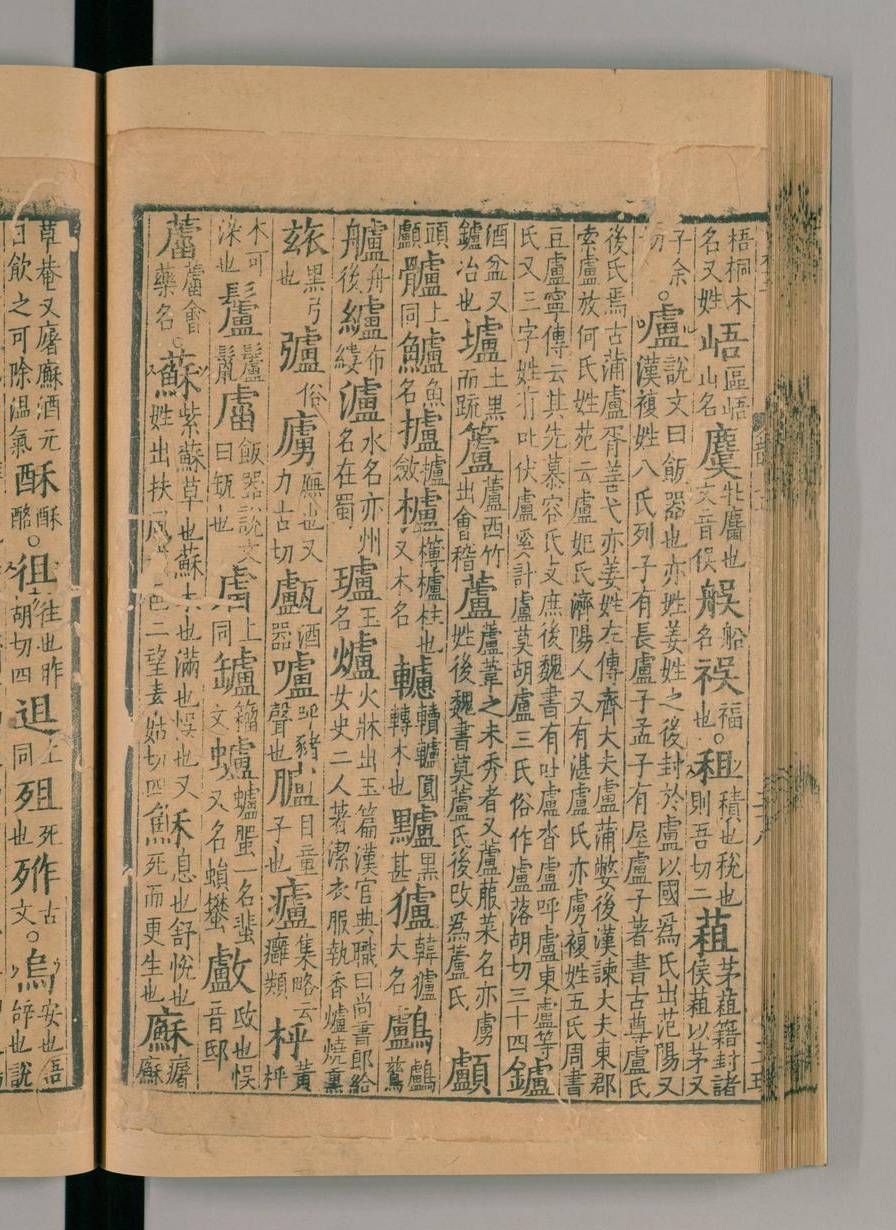 梧桐木名又姓峿區峿山名麌牝麕也文音俁䑨船名祦福也○租積也稅也則吾切二蒩茅蒩籍封諸侯蒩以茅又
子余切○盧說文曰飯器也亦姓姜姓之後封於盧以國爲氏出范陽又漢複姓八氏列子有長盧子孟子有屋盧子著書古尊盧氏
後氏焉古蒲盧胥善弋亦姜姓左傳齊大夫盧蒲嫳後漢諫大夫東郡索盧放何氏姓苑云盧妃氏濟陽人又有湛盧氏亦虜複姓五氏周書
豆盧寧傳云其先慕容氏支庶後魏書有吐盧沓盧呼盧東盧等氏又三字姓有吐伏盧奚計盧莫胡盧三氏俗作盧落胡切三十四鑪
酒盆又鑪冶也壚土黑而疏籚蘆西竹出會稽蘆蘆葦之未秀者又蘆菔菜名亦虜姓後魏書莫蘆氏後改爲蘆氏顱
頭顱髗上同鱸魚名攎攎斂櫨欂櫨柱也又木名轤轒轤圓轉木也黸黑甚獹韓獹大名鸕鸕鶿
艫舟後纑布縷瀘水名亦州名在蜀瓐玉名爐火牀出玉篇漢官典職曰尚書郎給女史二人著潔衣服執香爐燒熏
玈黑弓也㢚俗廡也又力古切酒器嚧呼豬聲也目童子也癰類枰黃枰
木可染也鬛飯器說文曰㼜也上同罏蠦蠦蜰一名蜚又名蠜㱺也音邸
蘆會藥名○蘇紫蘇草也蘇木也滿也悞也又姓出扶風二望素姑切四穌息也舒悅也死而更生也廜
草菴又廜㢝酒元日飲之可除温氣酥酪○徂往也昨胡切四上同殂死也古文○烏安也語辝也說